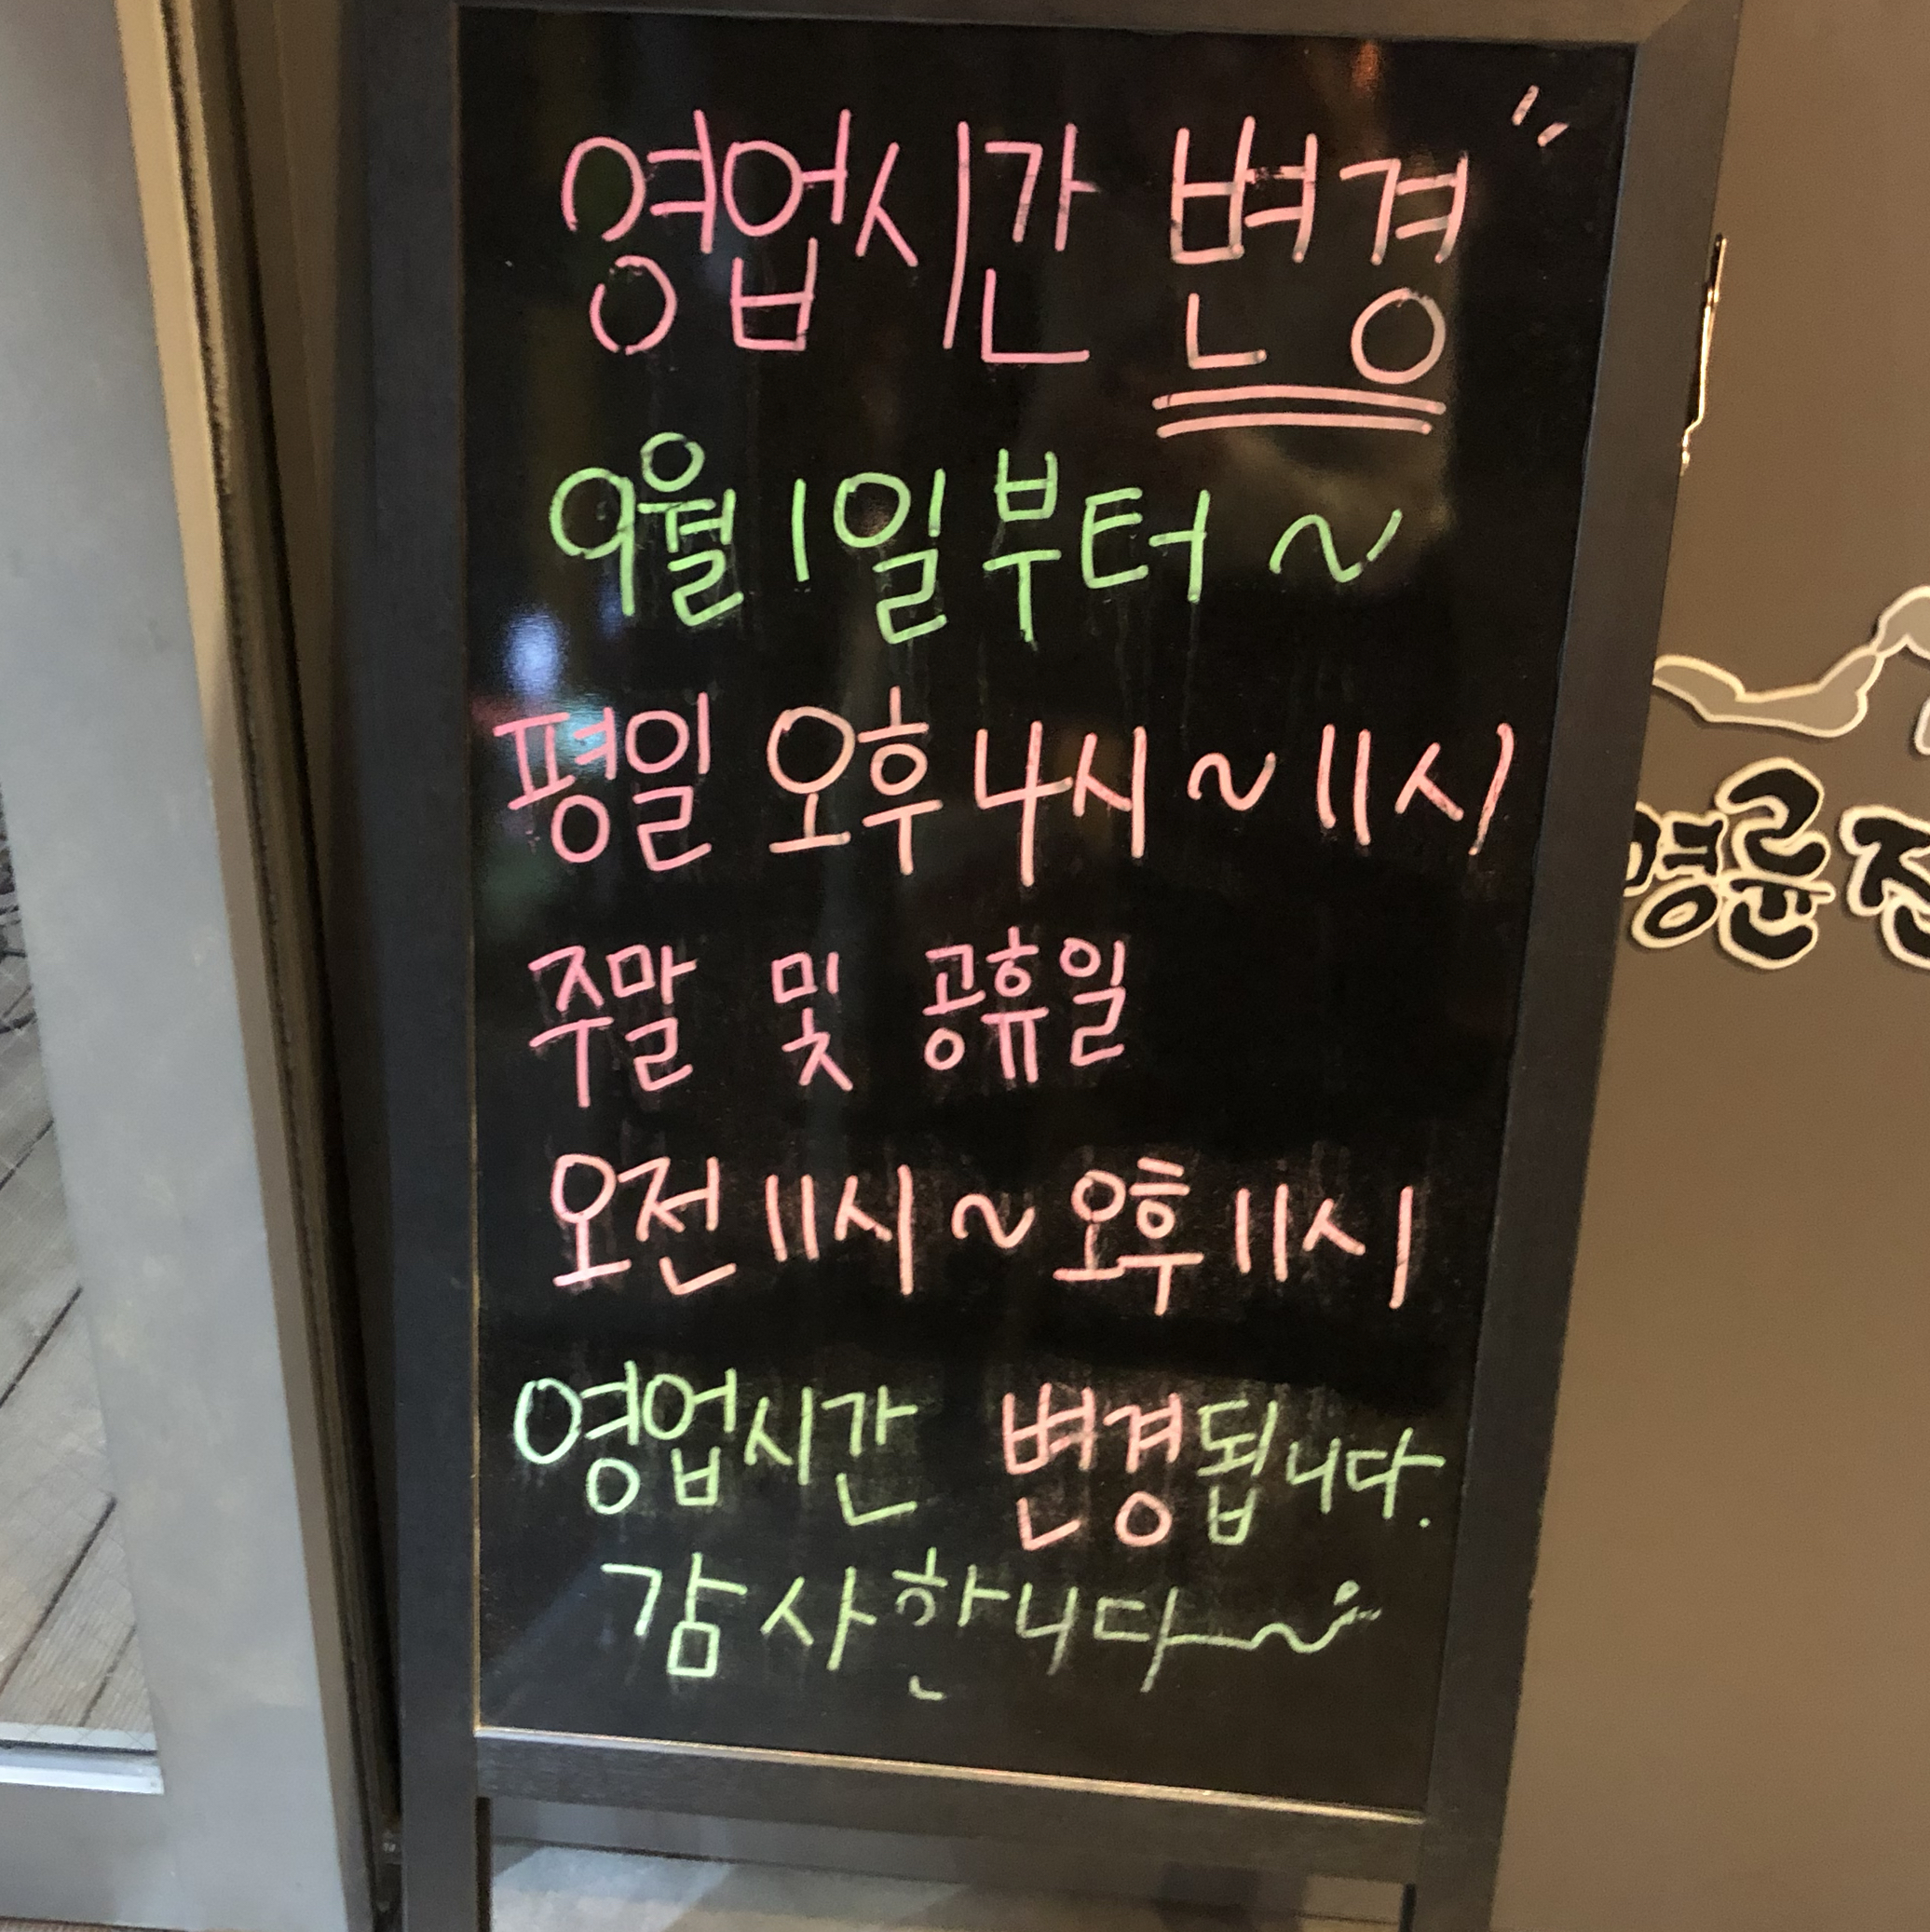 영업시간 변경
9월 1일부터 ~
평일 오후 4시 ~ 11시
주말 및 공휴일
오전 11시 ~ 오후 11시
영업시간 변경됩니다.
감사한니다~